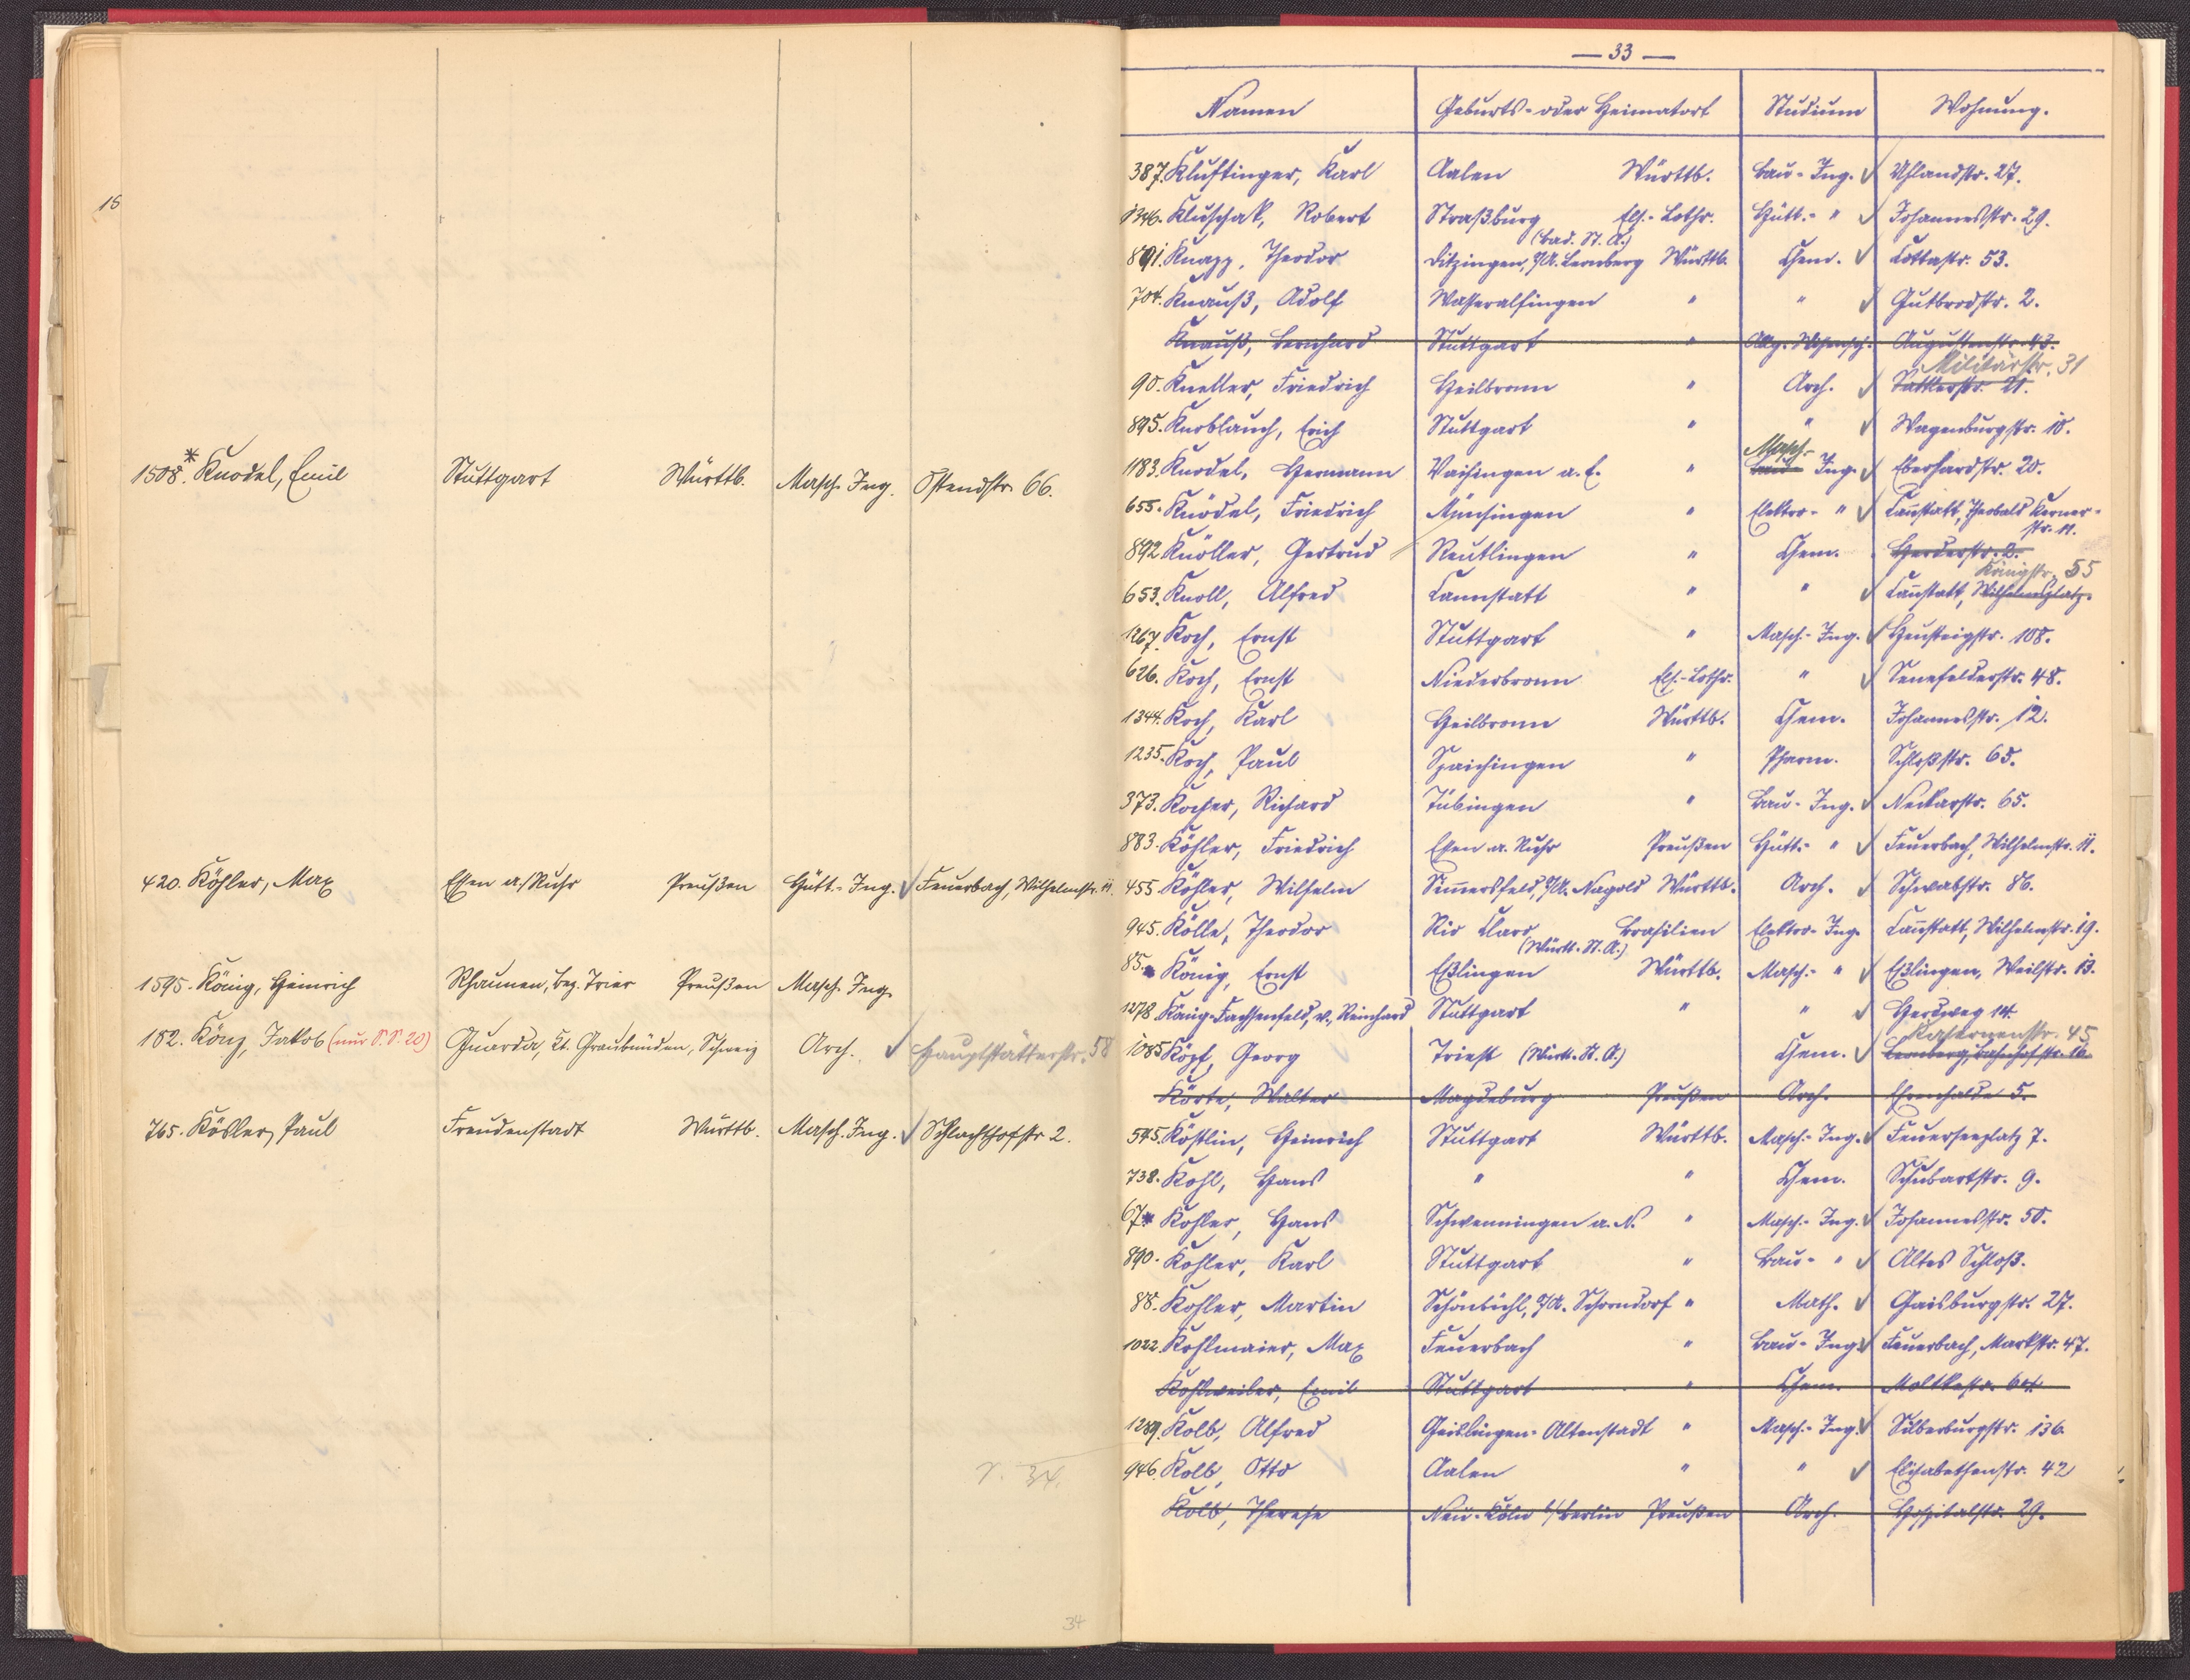 15
1508.* Knodel, Emil Stuttgart Württb. Masch. Ing. Ostendstr. 66.
420. Köhler, Max Essen a./Ruhr Preußen Hütt.-Ing. Feuerbach, Wilhelmstr. 11.
1595. König, Heinrich Rhaunen, Bez. Trier Preußen Masch. Ing.
182. Könz, Jakob (nur S.S. 20) Guarda, Kt. Graubünden, Schweiz Arch. Hauptstätterstr. 58
765. Kösler, Paul Freudenstadt Württb. Masch. Ing. Schlachthofstr 2.
34.
34
— 33 —
Namen Geburts- oder Heimatort Studium Wohnung.
387. Kluftinger, Karl Aalen Württb. Bau-Ing. Uhlandstr. 27.
1346. Kluschak, Robert Straßburg Els.-Lothr. Hütt.- " Johannesstr. 29.
(bad. St. A.)
891. Knapp, Theodor Ditzingen, O/A. Leonberg Württb. Chem. Cottastr. 53.
704. Knauß, Adolf Wasseralfingen " " Gutbrodstr. 2.
Knauß, Bernhard Stuttgart " Allg. Wissensch. Augustenstr. 43.
Militärstr. 31
90. Kneller, Friedrich Heilbronn " Arch. Sattlerstr. 21.
895. Knoblauch, Erich Stuttgart " " Wagenburgstr. 10.
Masch.-
1183. Knodel, Hermann Vaihingen a. E. " Bau Ing. Eberhardstr. 20.
655. Knödel, Friedrich Münsingen " Elektro- " Cannstatt, Theobald Kerner-
str. 11.
892 Knöller, Gertrud Reutlingen " Chem. Herderstr. 2.
Königstr. 55
653. Knoll, Alfred Cannstatt " " Cannstatt, Wilhelmsplatz.
1267. Koch, Ernst Stuttgart " Masch.-Ing. Heusteigstr. 108.
626. Koch, Ernst Niederbronn Els.-Lothr. " Senefelderstr. 48.
1344. Koch, Karl Heilbronn Württb. Chem. Johannesstr. 12.
1235. Koch, Paul Spaichingen " Pharm. Schloßstr. 65.
373. Kocher, Richard Tübingen " Bau-Ing. Neckarstr. 65.
883. Köhler, Friedrich Essen a. Ruhr Preußen Hütt.- " Feuerbach, Wilhelmstr. 11.
455. Köhler, Wilhelm Simmersfeld, O/A. Nagold Württb. Arch. Schwabstr. 86.
945. Kölle, Theodor Rio Claro Brasilien Elektro-Ing. Cannstatt, Wilhelmstr. 19.
(Württ. St. A.)
85.* König, Ernst Eßlingen Württb. Masch.- " Eßlingen, Weilstr. 13.
1278. König-Fachsenfeld, v., Reinhard Stuttgart " " Herdweg 14.
Kasernenstr. 45
1085 Köpf, Georg Triest (Württ. St. A.) Chem. Leonberg, Bahnhofstr. 16.
Körte, Walter Magdeburg Preußen Arch. Ehrenhalde 5.
545. Köstlin, Heinrich Stuttgart Württb. Masch.-Ing. Feuerseeplatz 7.
738. Kohl, Hans " " Chem. Schubartstr. 9.
67.* Kohler, Hans Schwenningen a. N. " Masch.-Ing. Johannesstr. 50.
890. Kohler, Karl Stuttgart " Bau- " Altes Schloß.
88. Kohler, Martin Schönbühl, O/A. Schorndorf " Math. Gaisburgstr. 27.
1022. Kohlmaier, Max Feuerbach " Bau-Ing. Feuerbach, Markstr. 47.
Kohlweiler, Emil Stuttgart " Chem. Moltkestr. 64.
1289. Kolb, Alfred Geislingen-Altenstadt " Masch.-Ing. Silberburgstr. 136.
946. Kolb, Otto Aalen " " Elisabethenstr. 42
Kolb, Therese Neu-Köln b/Berlin Preußen Arch. Hospitalstr. 29.